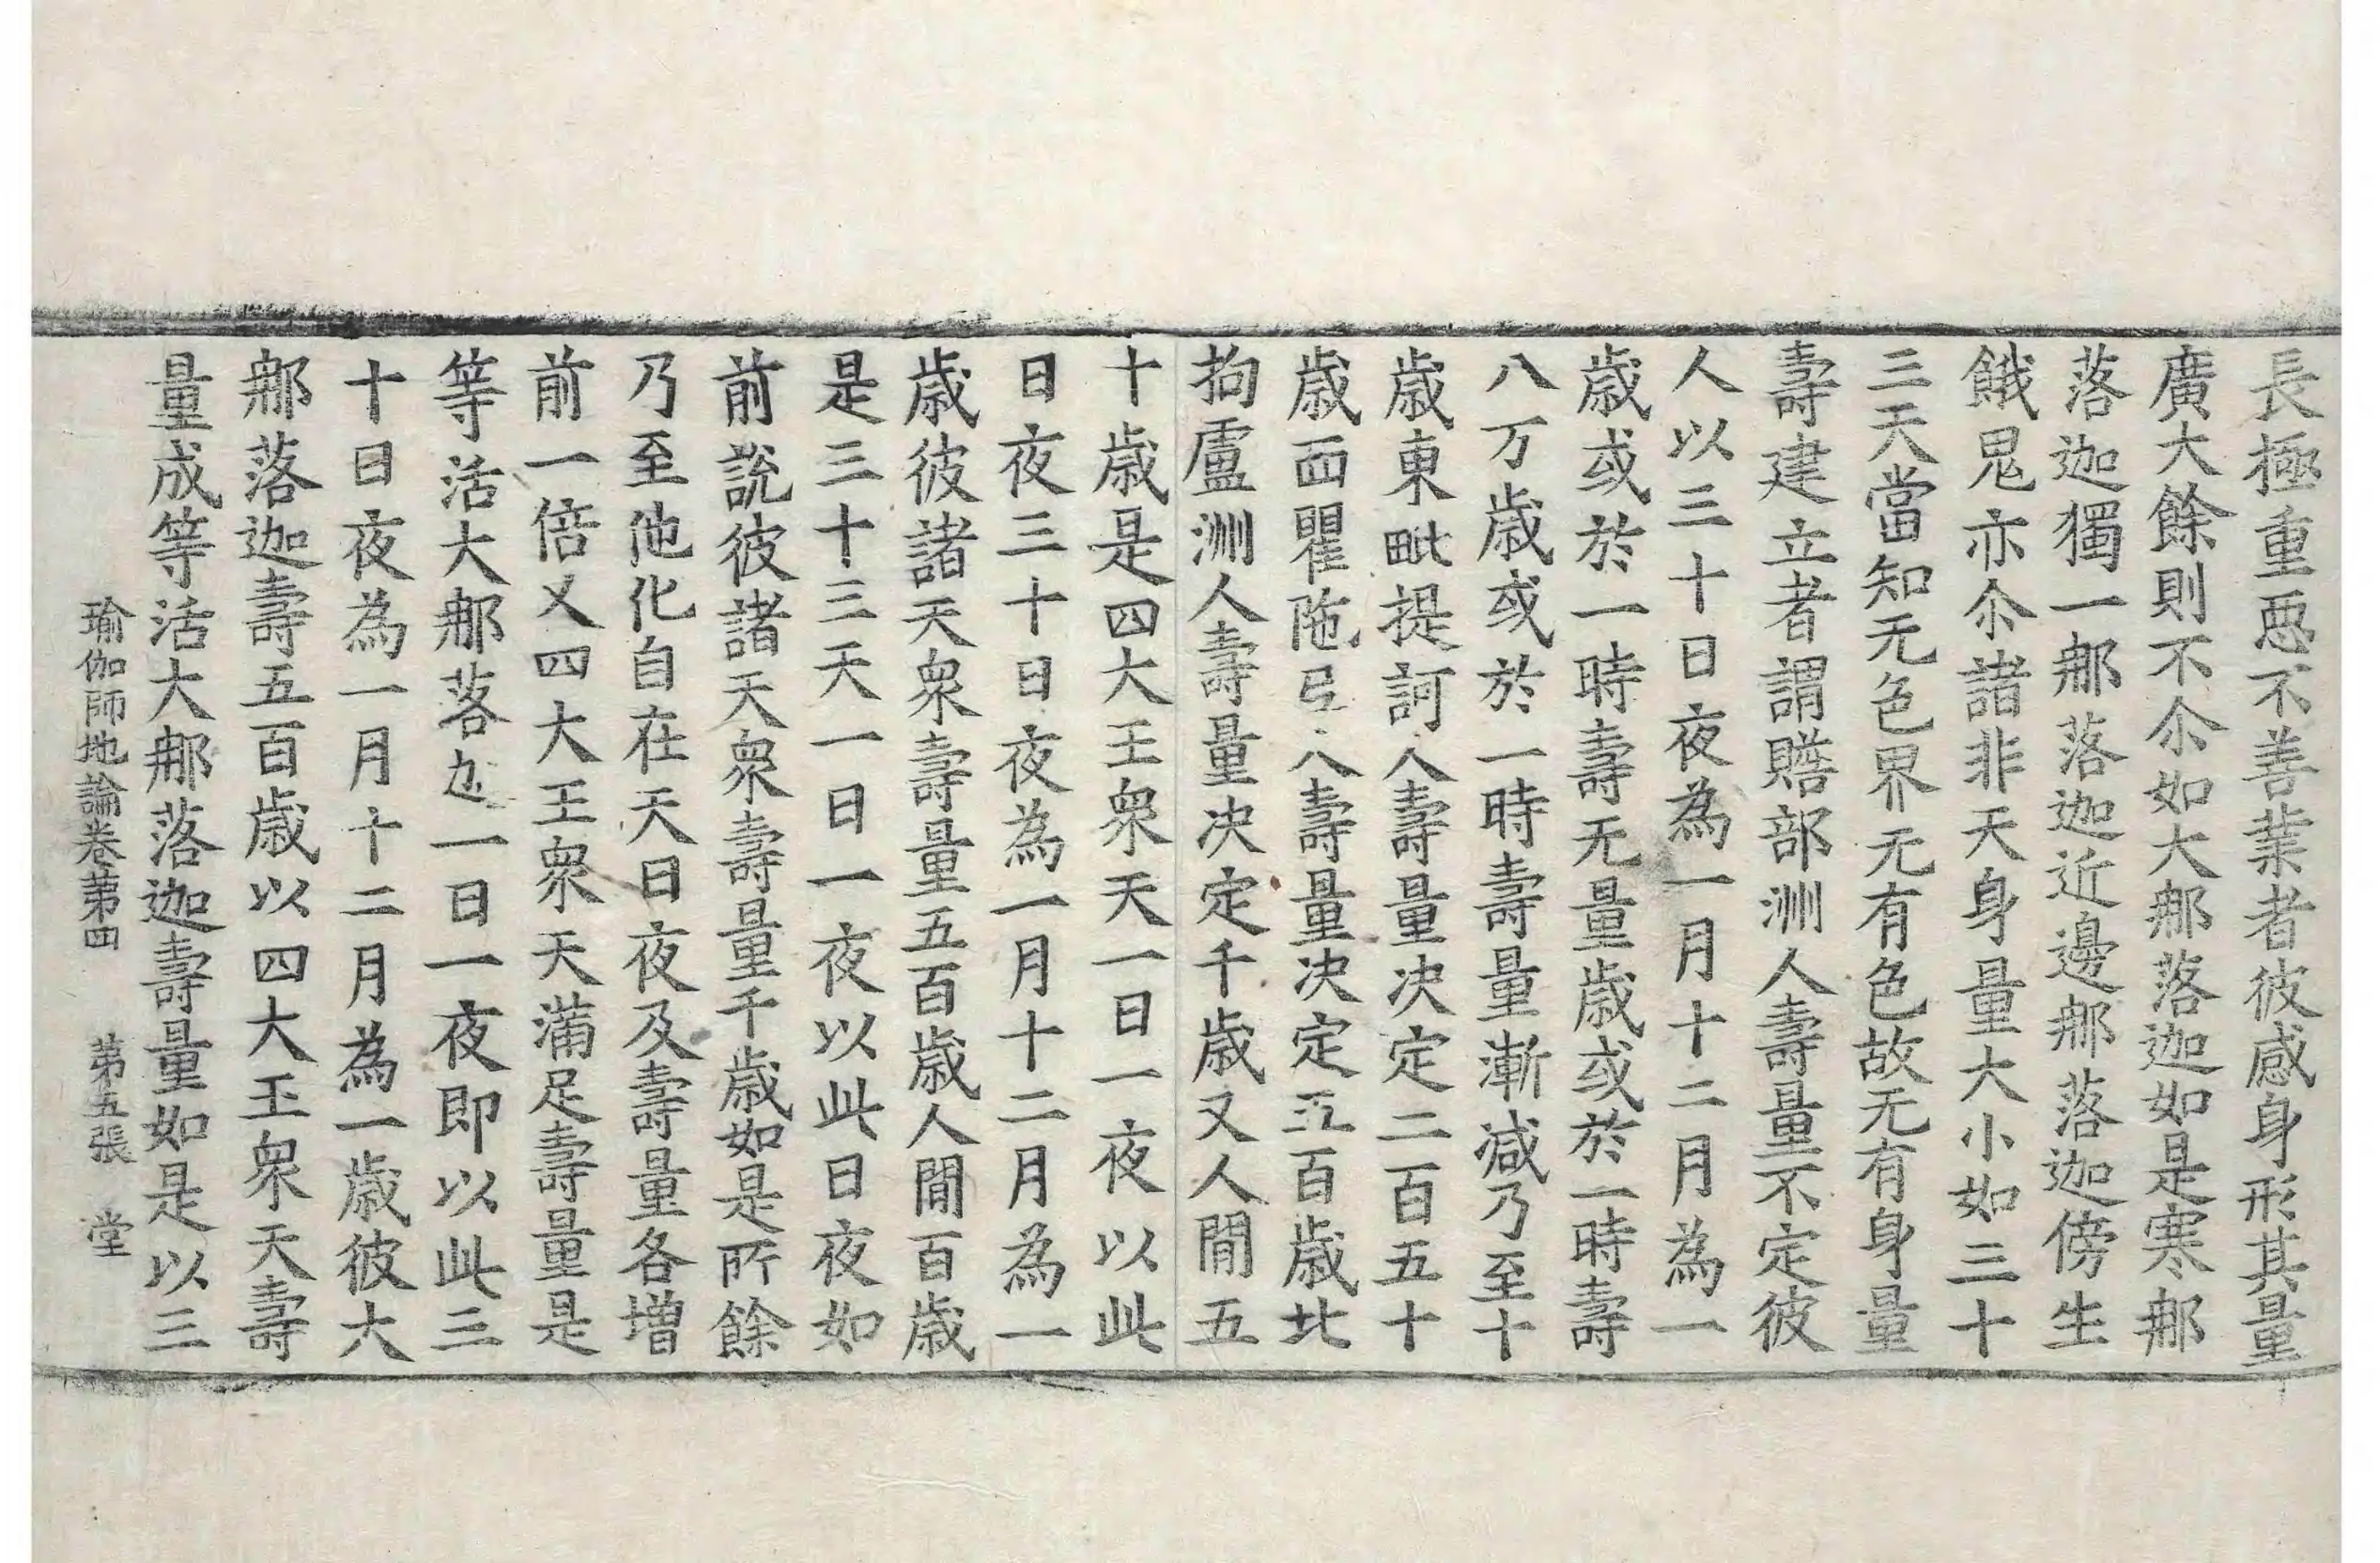 長極重惡不善業者彼感身形其量
廣大餘則不尒如大那落迦如是寒那
落迦獨一那落迦近邊那落迦傍生
餓鬼亦尒諸非天身量大小如三十
三天當知无色界无有色故无有身量
壽建立者謂贍部洲人壽量不定彼
人以三十日夜為一月十二月為一
歲或於一時壽无量歲或於一時壽
八万歲或於一時壽量漸減乃至十
歲東毗提訶人壽量決定二百五十
歲西瞿陁尼人壽量決定五百歲北
拘盧洲人壽量決定千歲又人間五
十歲是四大王衆天一日一夜以此
日夜三十日夜為一月十二月為一
歲彼諸天衆壽量五百歲人間百歲
是三十三天一日一夜以此日夜如
前說彼諸天衆壽量千歲如是所餘
乃至他化自在天日夜及壽量各增
前一倍又四大王衆天滿足壽量是
等活大那落迦一日一夜即以此三
十日夜為一月十二月為一歲彼大
那落迦壽五百歲以四大王衆天壽
量成等活大那落迦壽量如是以三
瑜伽師地論卷第四 第五張 堂